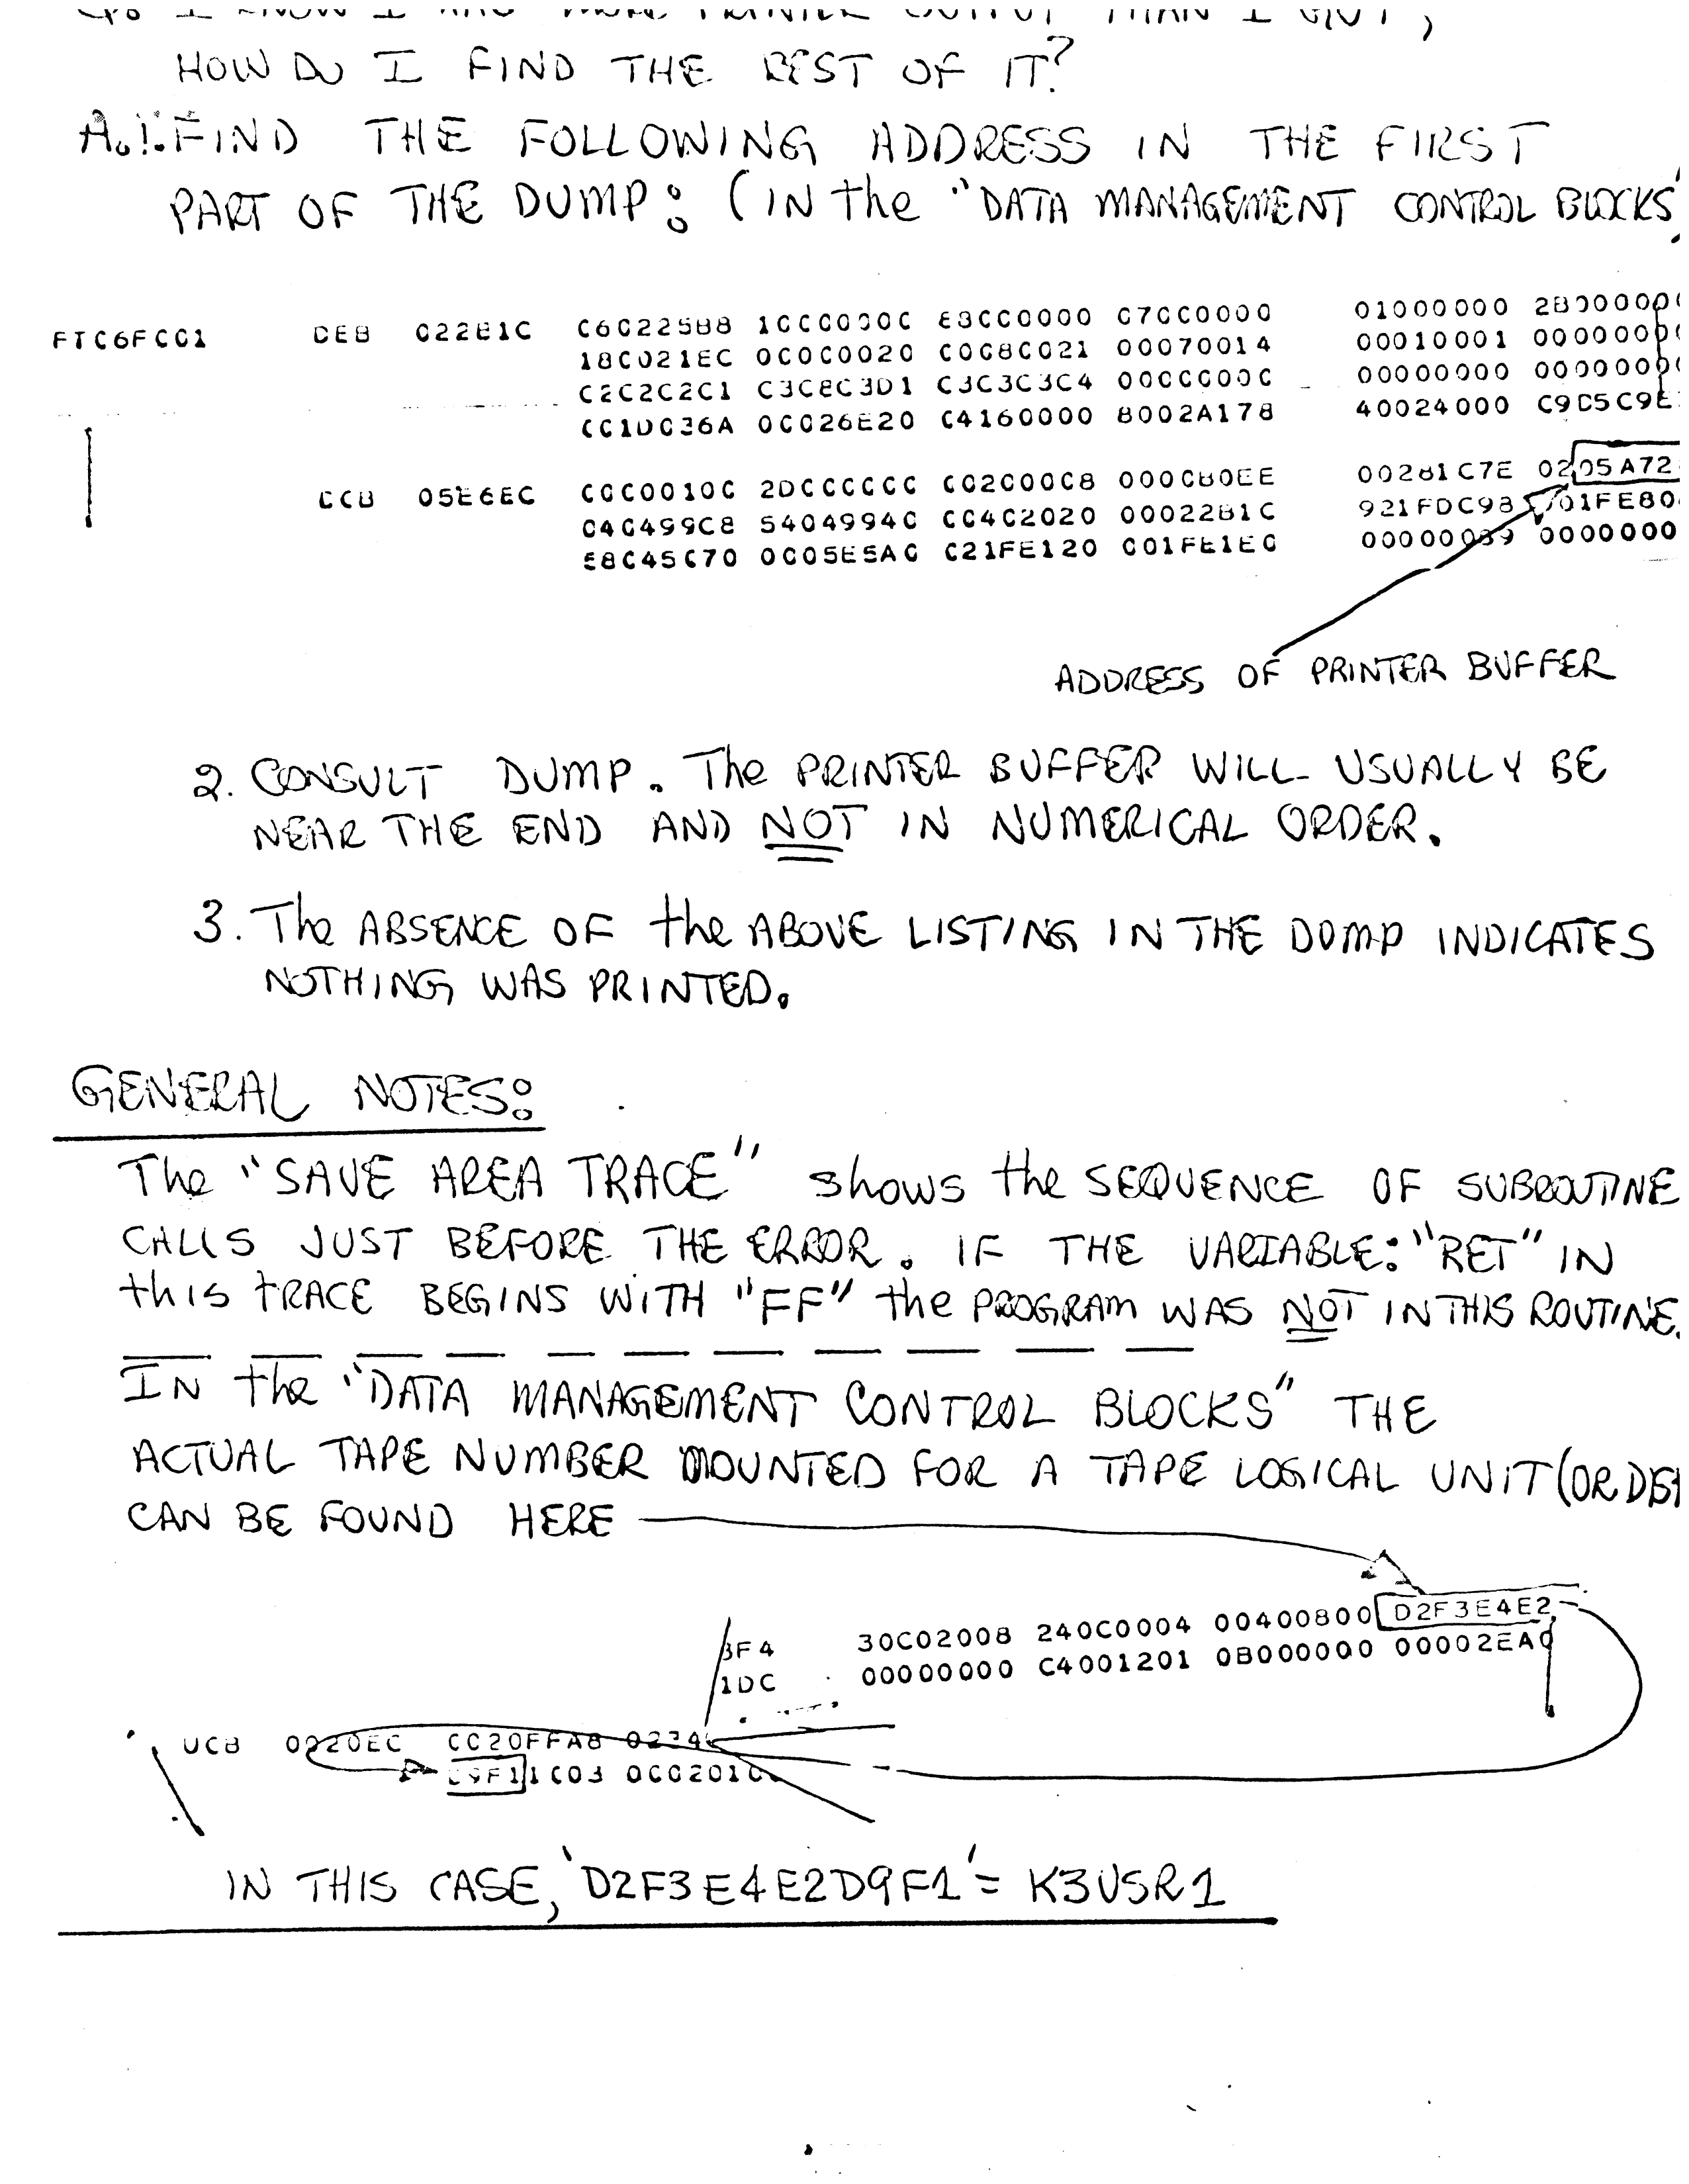 Q. I KNOW I HAD MORE PRINTER OUTPUT THAN I GOT,
HOW DO I FIND THE REST OF IT?
A. 1. FIND THE FOLLOWING ADDRESS IN THE FIRST
PART OF THE DUMP: (IN the "DATA MANAGEMENT CONTROL BLOCKS"
FTC6FCC1 DEB 022E1C C6C225B8 1CCC000C E8CC0000 C7CC0000 01000000 2B000000
18C021EC 0C0C0020 C0C8C021 00070014 00010001 0000000
C2C2C2C1 C3C8C3D1 C3C3C3C4 00CCC00C 00000000 0000000
CC1DC36A 0C026E20 C4160000 8002A178 40024000 C9D5C9E
DCB 05E6EC CGC0010C 2DCCCCCC CC2C00C8 000CB0EE 00281C7E 0205A72
C4C499C8 5404994C CC4C2020 00022B1C 921FDC98 01FE80
E8C45C70 0C05E5AC C21FE120 C01FE1EC 00000039 0000000
ADDRESS OF PRINTER BUFFER
2. CONSULT DUMP. The PRINTER BUFFER WILL USUALLY BE
NEAR THE END AND NOT IN NUMERICAL ORDER.
3. The ABSENCE OF the ABOVE LISTING IN THE DUMP INDICATES
NOTHING WAS PRINTED.
GENERAL NOTES:
The "SAVE AREA TRACE" shows the SEQUENCE OF SUBROUTINE
CALLS JUST BEFORE THE ERROR. IF THE VARIABLE: "RET" IN
this TRACE BEGINS WITH "FF" the PROGRAM WAS NOT IN THIS ROUTINE.
IN the "DATA MANAGEMENT CONTROL BLOCKS" THE
ACTUAL TAPE NUMBER MOUNTED FOR A TAPE LOGICAL UNIT (OR
CAN BE FOUND HERE
3F4 30C02008 240C0004 00400800 D2F3E4E2
1DC 00000000 C4001201 0B000000 00002EA0
UCB 0020EC CC20FFA8 0234
D9F11C03 0CC2010
IN THIS CASE, 'D2F3E4E2D9F1' = K3USR1